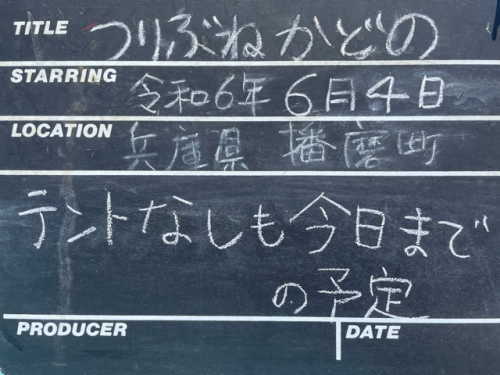 TITLE つりぶねかどの
STARRING 令和6年 6月4日
LOCATION 兵庫県 播磨町
テントなしも今日まで
の予定
PRODUCER DATE